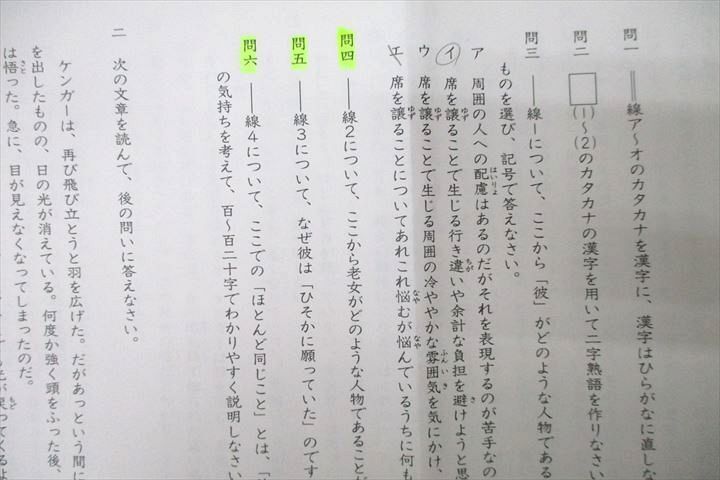 問一 ――線ア〜オのカタカナを漢字に、漢字はひらがなに直しな
問二 □(1)〜(2)のカタカナの漢字を用いて二字熟語を作りなさい
問三 ――線1について、ここから「彼」がどのような人物である
ものを選び、記号で答えなさい。
ア 周囲の人への配慮はあるのだがそれを表現するのが苦手なの
イ 席を譲ることで生じる行き違いや余計な負担を避けようと思
ウ 席を譲ることで生じる周囲の冷ややかな雰囲気を気にかけ、
エ 席を譲ることについてあれこれ悩むが悩んでいるうちに何も
問四 ――線2について、ここから老女がどのような人物であることが
問五 ――線3について、なぜ彼は「ひそかに願っていた」のです
問六 ――線4について、ここでの「ほとんど同じこと」とは、
の気持ちを考えて、百〜百二十字でわかりやすく説明しなさい
二 次の文章を読んで、後の問いに答えなさい。
ケンガーは、再び飛び立とうと羽を広げた。だがあっという間に
を出したものの、日の光が消えている。何度か強く頭をふった後、
は悟った。急に、目が見えなくなってしまったのだ。